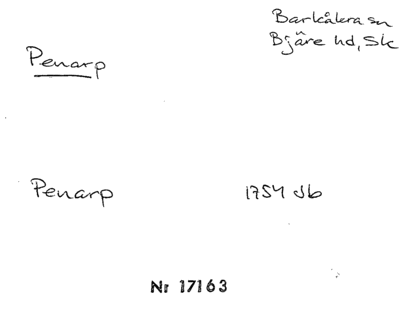 Barkåkra sn
Bjäre hd, Sk
Penarp
Penarp 1754 Jb
Nr 17163